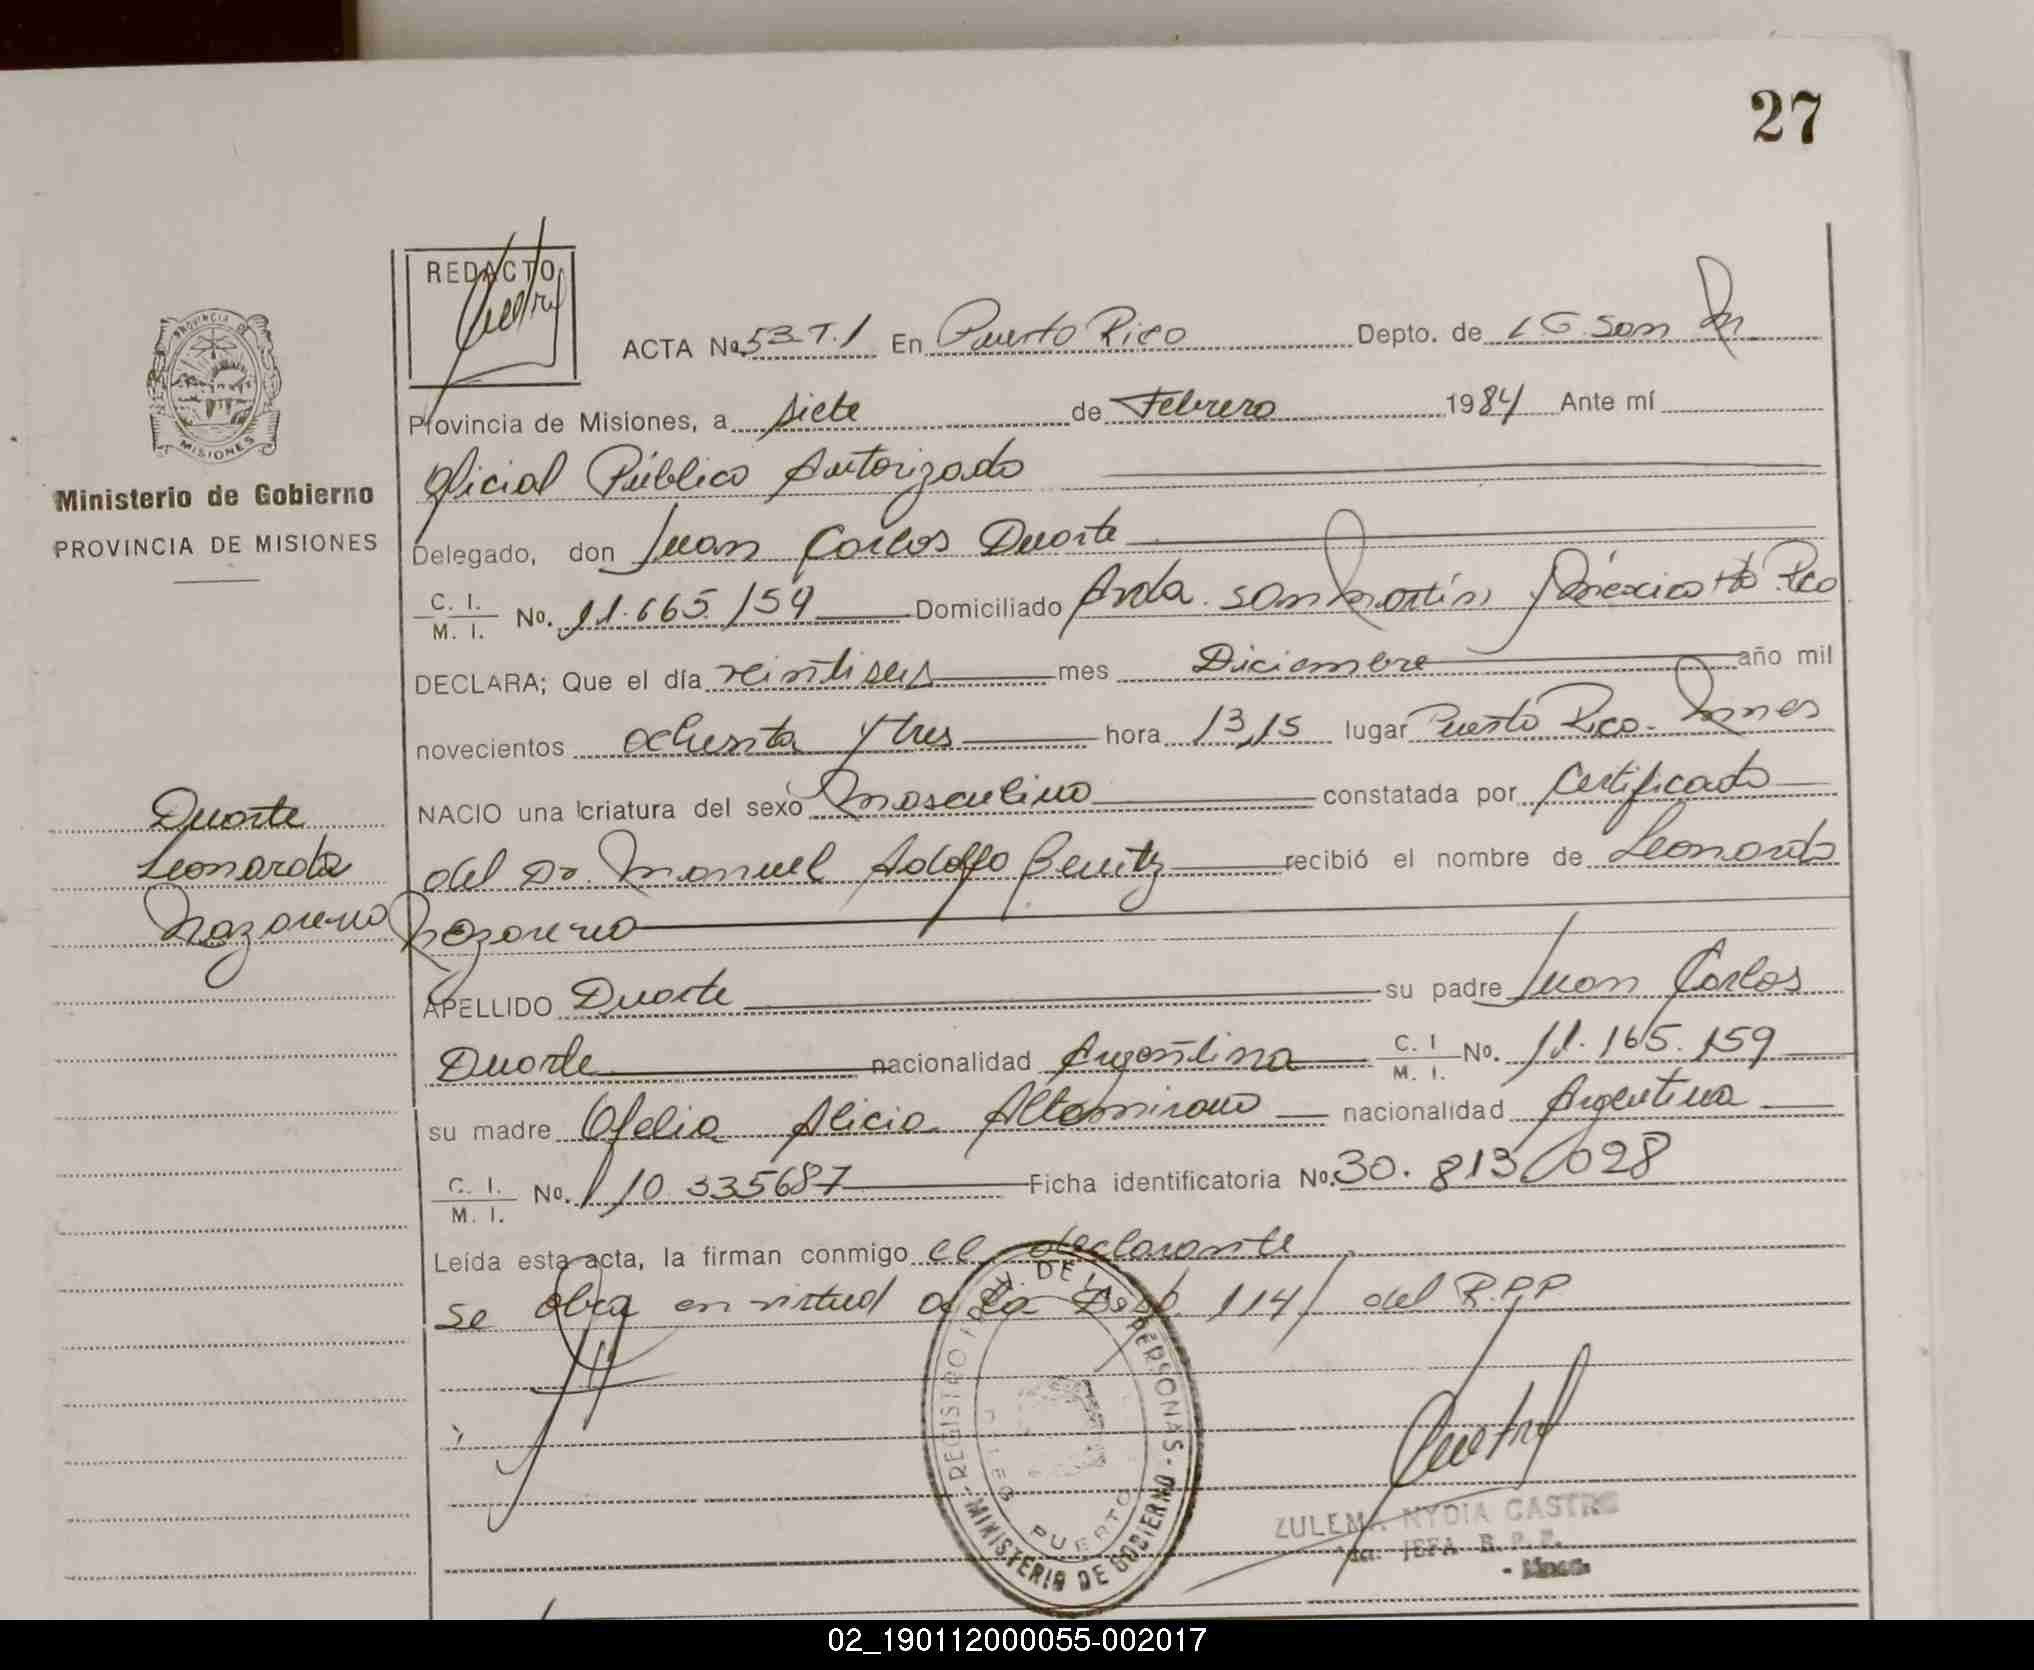 27
REDACTO
ACTA No. 53 T.1 En Puerto Rico Depto. de L G. San M
Provincia de Misiones, a siete de Febrero 1984 Ante mí
Oficial Público Autorizado
Delegado, don Juan Carlos Duarte
C. I. M. I. No. 11.665.159 Domiciliado Avda. San Martín y México Pto Rico
DECLARA; Que el día veintiseis mes Diciembre año mil
novecientos ochenta y tres hora 13,15 lugar Puerto Rico - Mnes
NACIO una criatura del sexo Masculino constatada por Certificado
del Dr. Manuel Adolfo Benitz recibió el nombre de Leonardo
Nazareno
APELLIDO Duarte su padre Juan Carlos
Duarte nacionalidad Argentina C. I M. I. No. 11.165.159
su madre Ofelia Alicia Altamirano nacionalidad Argentina
C. I. M. I. No. 10.335687 Ficha identificatoria No. 30.813.028
Leída esta acta, la firman conmigo el declarante
se obra en virtud a la 114/ del R.P.P
PROVINCIA DE
MISIONES
Ministerio de Gobierno
PROVINCIA DE MISIONES
Duarte
Leonardo
Nazareno
REGISTRO PROV. DE LAS PERSONAS - MINISTERIO DE GOBIERNO -
PUERTO
ZULEMA NYDIA CASTRO
JEFA R. P. P.
02_190112000055-002017